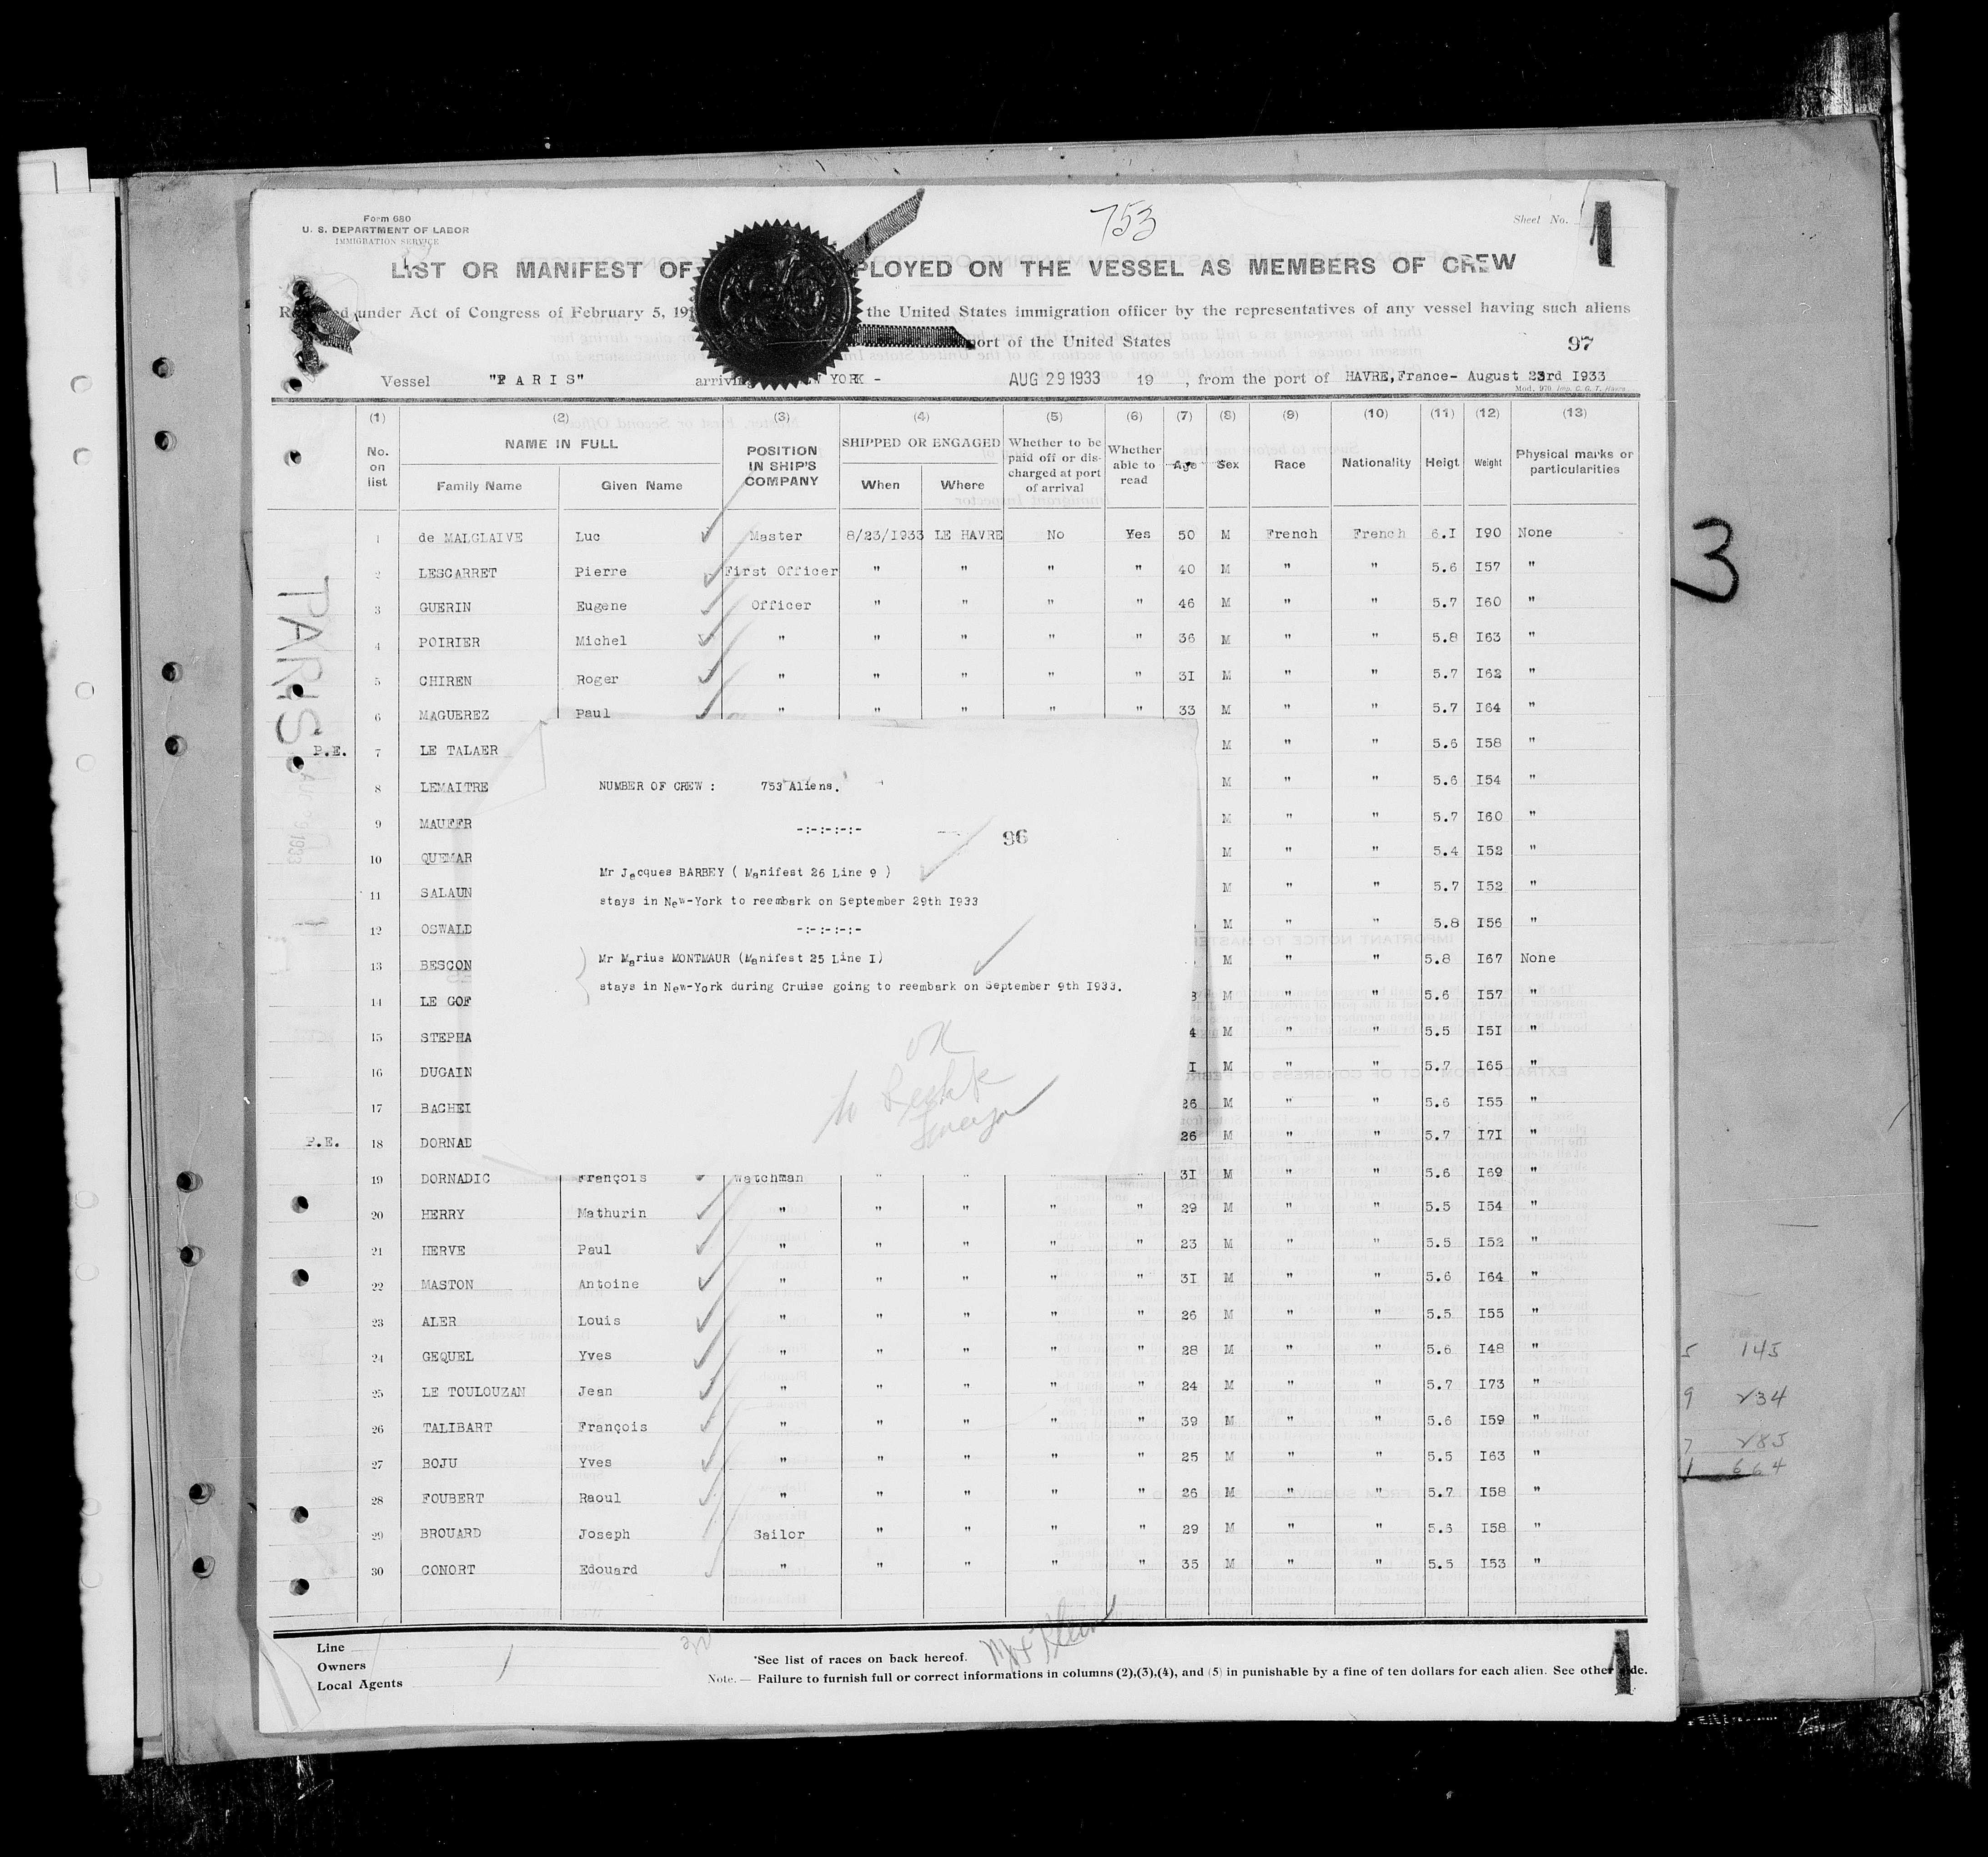 Form 680
U. S. DEPARTMENT OF LABOR
IMMIGRATION SERVICE
753
Sheet No. 1
LIST OR MANIFEST OF PLOYED ON THE VESSEL AS MEMBERS OF CREW
under Act of Congress of February 5, 191 the United States immigration officer by the representatives of any vessel having such aliens
port of the United States
97
Vessel "PARIS" arriving YORK - AUG 29 1933 19 , from the port of HAVRE, France- August 23rd I933
Mod. 970 Imp. C. G. T. Havre
(1) (2) (3) (4) (5) (6) (7) (8) (9) (10) (11) (12) (13)
No. on list NAME IN FULL Family Name Given Name POSITION IN SHIP'S COMPANY SHIPPED OR ENGAGED When Where Whether to be paid off or discharged at port of arrival Whether able to read Age Sex Race Nationality Heigt Weight Physical marks or particularities
1 de MALGLAIVE Luc Master 8/23/I933 LE HAVRE No Yes 50 M French French 6.I I90 None
2 LESCARRET Pierre First Officer " " " " 40 M " " 5.6 I57 "
3 GUERIN Eugene Officer " " " " 46 M " " 5.7 I60 "
4 POIRIER Michel " " " " " 36 M " " 5.8 I63 "
5 CHIREN Roger " " " " " 3I M " " 5.7 I62 "
6 MAGUEREZ Paul " " " " " 33 M " " 5.7 I64 "
P.E. 7 LE TALAER M " " 5.6 I58 "
8 LEMAITRE M " " 5.6 I54 "
9 MAUFFR M " " 5.7 I60 "
10 QUEMAR M " " 5.4 I52 "
11 SALAUN M " " 5.7 I52 "
12 OSWALD M " " 5.8 I56 "
13 BESCON M " " 5.8 I67 None
14 LE GOF M " " 5.6 I57 "
15 STEPHA 4 M " " 5.5 I5I "
16 DUGAIN I M " " 5.7 I65 "
17 BACHEI 26 M " " 5.6 I55 "
P.E. 18 DORNAD 26 M " " 5.7 I7I "
19 DORNADIC François Watchman " " " " 3I M " " 5.6 I69 "
20 HERRY Mathurin " " " " " 29 M " " 5.5 I54 "
21 HERVE Paul " " " " " 23 M " " 5.5 I52 "
22 MASTON Antoine " " " " " 3I M " " 5.6 I64 "
23 ALER Louis " " " " " 26 M " " 5.5 I55 "
24 GEQUEL Yves " " " " " 28 M " " 5.6 I48 "
25 LE TOULOUZAN Jean " " " " " 24 M " " 5.7 I73 "
26 TALIBART François " " " " " 39 M " " 5.6 I59 "
27 BOJU Yves " " " " " 25 M " " 5.5 I63 "
28 FOUBERT Raoul " " " " " 26 M " " 5.7 I58 "
29 BROUARD Joseph Sailor " " " " 29 M " " 5.6 I58 "
30 CONORT Edouard " " " " " 35 M " " 5.5 I53 "
NUMBER OF CREW : 753 Aliens.
-:-:-:-:-
96
Mr Jacques BARBEY ( Manifest 26 Line 9 )
stays in New-York to reembark on September 29th I933
-:-:-:-:-
Mr Marius MONTMAUR (Manifest 25 Line I)
stays in New-York during Cruise going to reembark on September 9th I933.
PARIS
3
145
234
285
664
Line
Owners
Local Agents
*See list of races on back hereof.
Note. — Failure to furnish full or correct informations in columns (2),(3),(4), and (5) in punishable by a fine of ten dollars for each alien. See other side.
1